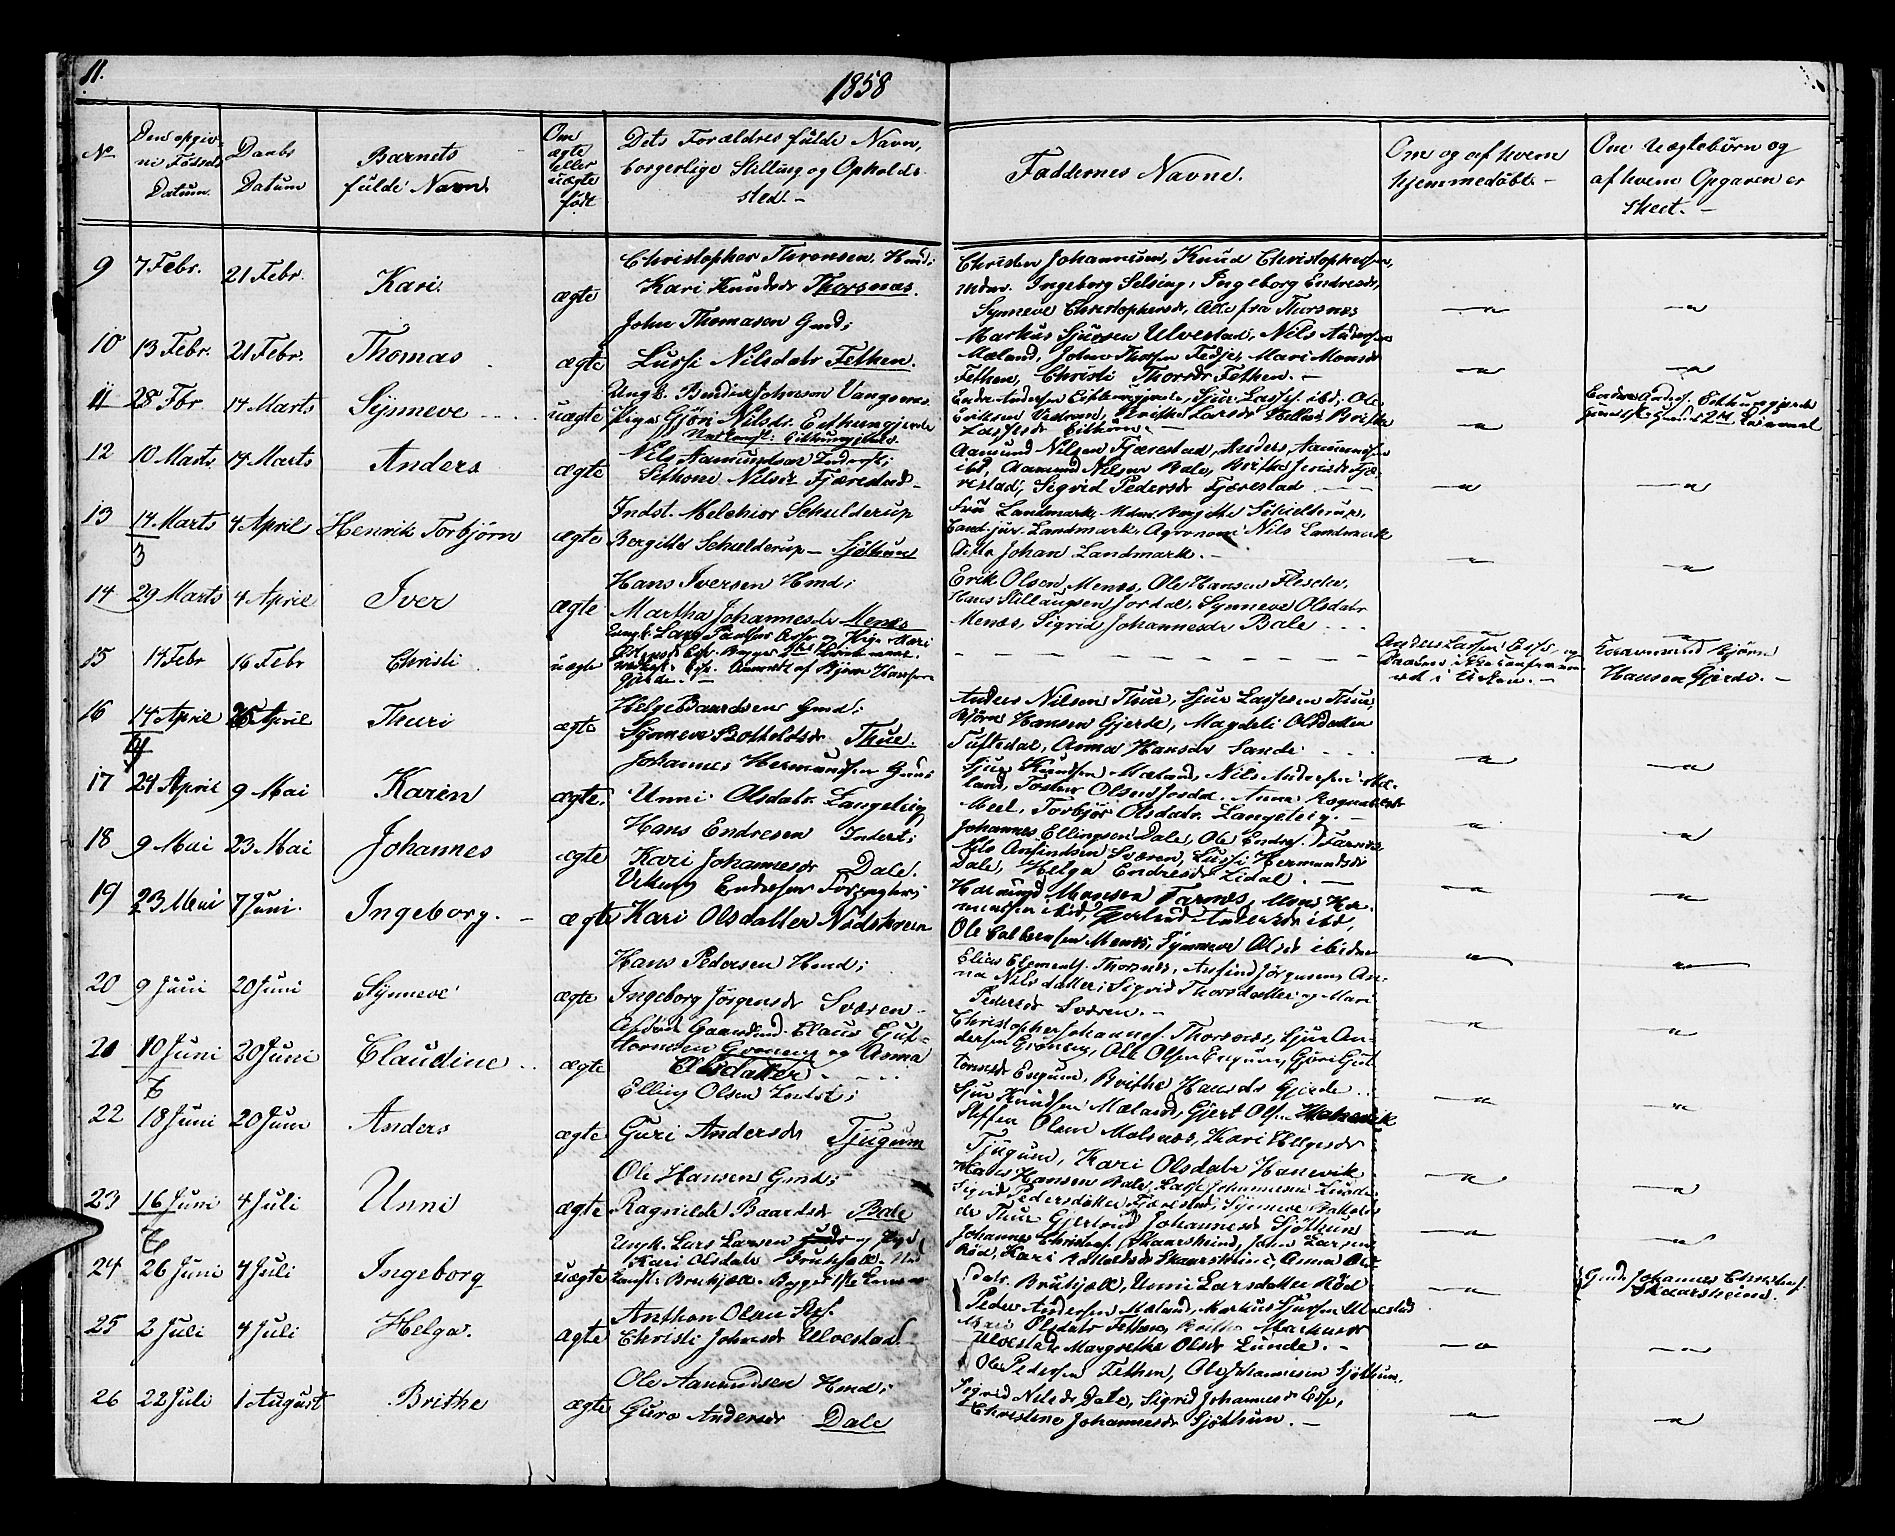 11.
1858
No
Den opgiv-
ne Fødsels
Datum.
Daabs
Datum
Barnets
fulde Navn.
Om
ægte
eller
uægte
født
Dets Forældres fulde Navn,
borgerlige Stilling og Opholds-
sted. -
Faddernes Navne.
Om og af hvem
hjemmedøbt. -
Om Uægtebørn og
af hvem Opgaven er
skeet. -
9 7 Febr. 21 Febr. Kari. ægte
Christopher Thronsen Hmd;
Kari Knudsdr Thorsnæs.
Christen Johannesen, Knud Christophersen,
Mdm. Ingeborg Selsing, Ingeborg Endresdr,
Synneve Christophersdr, Alle fra Thorsnæs
10 13 Febr. 21 Febr. Thomas ægte
John Thomasen Gmd;
Lussi Nilsdatr Fethen.
Markus Sjursen Ulvestad, Nils Andersen
Mæland, John Thorsen Fedje, Mari Monsdr
Fethen, Christi Thorsdr Fethen. -
11 28 Fbr. 14 Marts Synneve uægte
Ungk. Bendix Johnson Vangsnæs
Pige Gjøri Nilsdr. Eithungjerde
Endre Andersen Eithungjerde, Sjur Lasses. ibd; Ole
Eriksen Vedvm, Brithe Larsdr Brithe
Lassesdr Eithun. -
12 10 Marts 14 Marts Anders ægte
Nils Aamundsen Inderst;
Sithone Nilsdr Fjærestad -
Aamund Nilsen Fjærestad, Anders Aamundsen
ibd, Aamund Nilsen Bale, Brithe Iversdr Fjæ-
restad; Sigrid Pedersdr Fjærestad
13 14 Marts 4 April Henrik Torbjørn ægte
3
Indst. Melchior Schielderup
Bergitte Schielderup - Sjøthun
Fru Landmark, Mdm. Bergitte Schieltrup,
Cand. jur. Landmark, Agronom Nils Landmark
Ditto Johan Landmark. -
14 29 Marts 4 April Iver ægte
Hans Iversen Hmd;
Martha Johannesdr Menæs
Erik Olsen, Menæs, Ole Hansen Flesche,
Hans Stillaugsen Jordal, Synneve Olsdatr
Menæs, Sigrid Johannesdr Bale
15 14 Febr 16 Febr Christi uægte
Anders Lassen Ese, og
Hansen Gjerde. -
16 14 April 25 April Thuri ægte
Helge Baardsen Gmd;
Synneve Botholdsdr Thue.
Anders Nilsen Thue, Sjur Lassesen Thue,
Bjørn Hansen Gjerde, Magdeli Olsdatter
Tuftedal, Anna Hansdr Sande.
17 24 April 9 Mai Karen ægte
Johannes Hermundsen Gmd
Unni Olsdatr. Langeteig
Sjur Knudsen Mæland, Nils Andersen Mæ-
land, Tosten Olsen Jordal, Anna Ragnaldsdr
Meel, Torbjør Olsdatr. Langeteig. -
18 9 Mai 23 Mai Johannes ægte
Hans Endresen Inderst;
Kari Johannesdr Dale.
Johannes Ellingsen Dale, Ole Endres. Farnæs
Nils Ansindsen Sværen, Lussi Hermundsdr
Dale, Helga Endresdr Lidal. -
19 23 Mai 7 Juni. Ingeborg. - ægte
Viking Endresen Forpagter;
Kari Olsdatter Nødskreen
Hermund Monsen Farnæs, Mons Her-
mundsen ibid, Gjertrud Andersdr ibd,
Ole Colbensen Menæs, Synneve Olsdr ibidem
20 9 Juni 20 Juni Synneve ægte
Hans Pedersen Hmd;
Ingeborg Jørgensdr Sværen
Elias Clements. Thorsnæs, Ansind Jørgensen, An-
na Nilsdatter, Sigrid Thorsdatter og Mari
Pedersdr Sværen. -
21 10 Juni 20 Juni Claudine ægte
Afdøde Gaardmd. Claus Gut-
tormsen Grøneng og Anna
Olsdatter
Christopher Johannes. Thorsnæs, Sjur An-
dersen Grøneng, Ole Olsen Engum, Gjøri Gut-
tormsdr Engum, Brithe Hansdr Gjerde
22 18 Juni 20 Juni Anders ægte
Elling Olsen Indst;
Guri Andersdr Tjugum
Sjur Knudsen Mæland, Gjert Ols. Hanevik
Steffen Olsen Malsnæs, Kari Helgesdr
Tjugum, Kari Olsdatr Hanevik
23 16 Juni 4 Juli Unni ægte
Ole Hansen Gmd;
Ragnilde Baardsdr Bale
Hans Hansen Bale, Lasse Johannesen Lunde
Sigrid Pedersdatter Fjærestad, Synneve Botholds-
dr Thue Gjertrud Johannesdr Sjøthun
24 26 Juni 4 Juli Ingeborg uægte
Ungk. Lars Larsen og Pige
Kari Olsdatr Bruhjell.
Johannes Christens. Skaarsheim, Jens Larsen
Rød, Kari Botholdsdr Skaarsheim, Anna Ols-
datr. Bruhjell, Unni Larsdatter Rød
Gmd. Johannes Christens.
Skaarsheim.
25 2 Juli 4 Juli Helga. ægte
Anthon Olsen
Christi Johnsdr Ulvestad.
Peder Andersen Mæland, Markus Sjursen Ulvestad
Mari Olsdatr Fethen, Brithe Markusdr
Ulvestad, Margrethe Olsdr Lunde. -
26 22 Juli 1 August Brithe ægte
Ole Aamundsen Hmd;
Guro Andersdr Dale
Ole Pedersen Fethen, Ole Johannesen Sjøthun,
Sigrid Nilsdr Dale, Sigrid Johannesdr Ese,
Christine Johannesdr Sjøthun. -